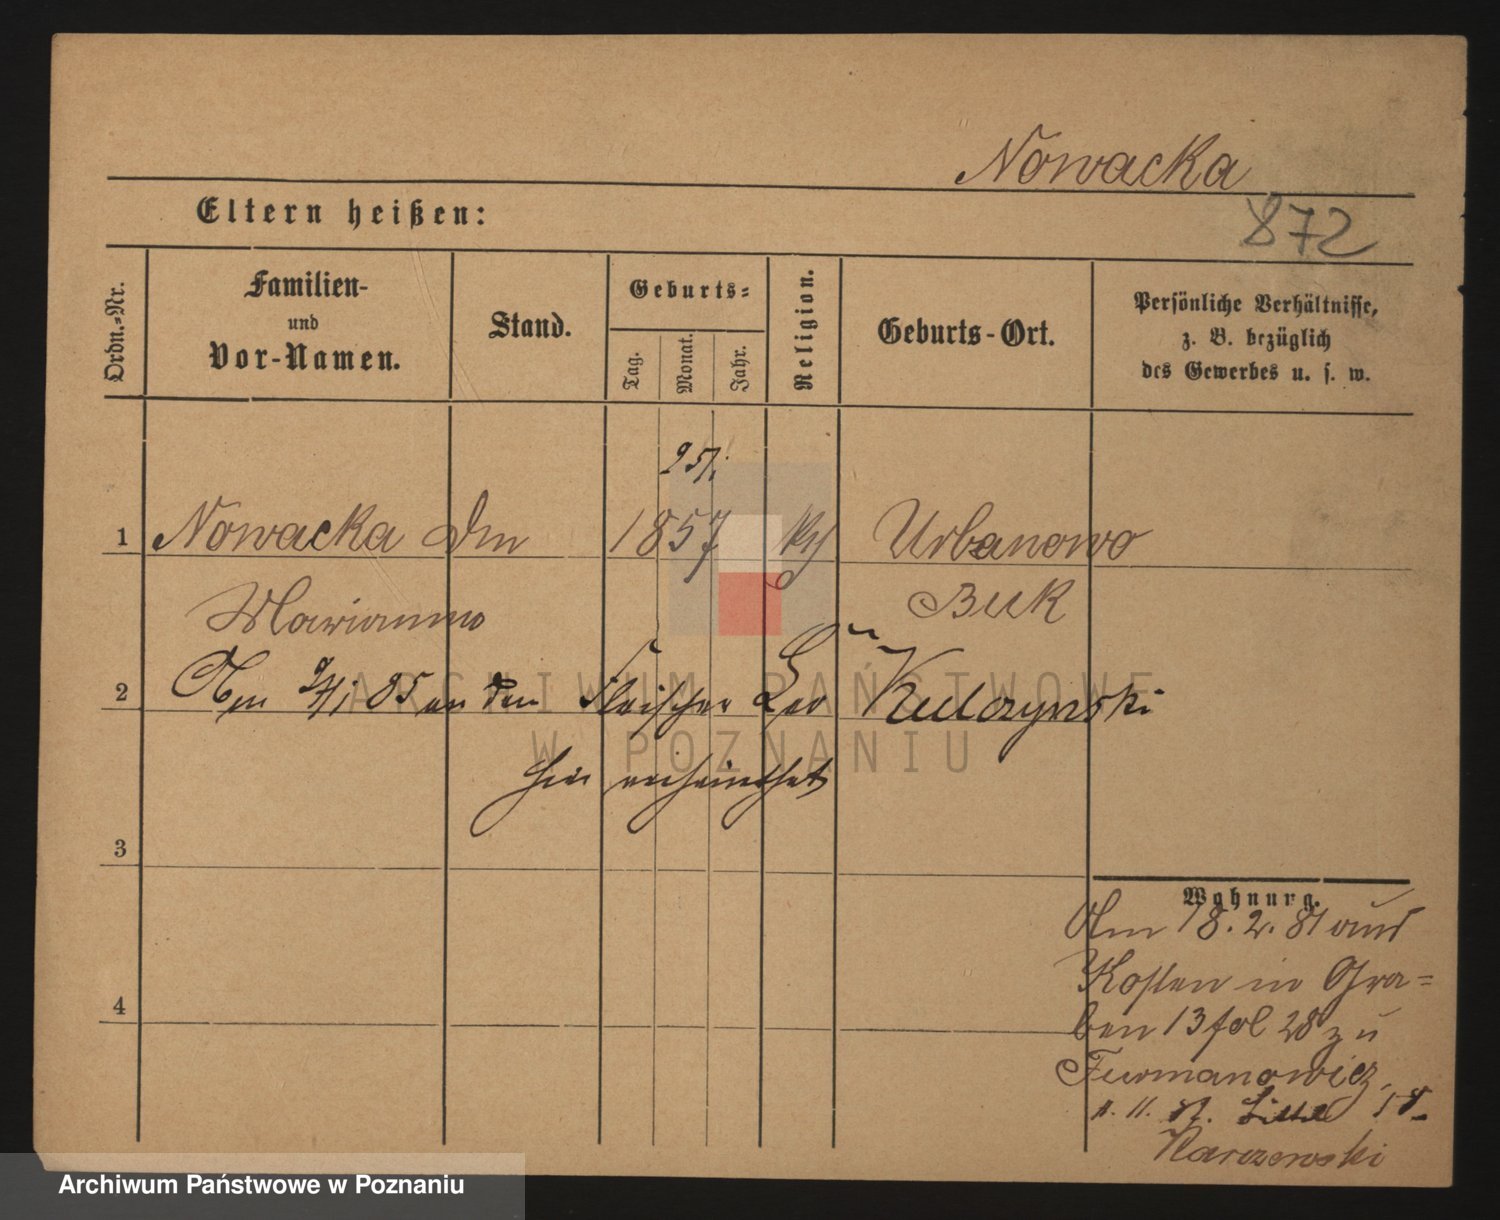 Nowacka
Eltern heißen:
872
Ordn.-Nr.
Familien-
und
Vor-Namen.
Stand.
Geburts-
Tag.
Monat.
Jahr.
Religion.
Geburts-Ort.
Persönliche Verhältnisse,
z. B. bezüglich
des Gewerbes u. s. w.
1 Nowacka 1857 Urbanowo
Marianna Buk
2 Am 85 an den Fleischer Leo Kulczynski
hier verheirathet
3
4
Wohnung.
Am 18. 2. 81 aus
Kosten in Gra=
ben 13 fol 28 zu
Furmanowicz
Karczewski
ARCHIWUM PAŃSTWOWE
W POZNANIU
Archiwum Państwowe w Poznaniu